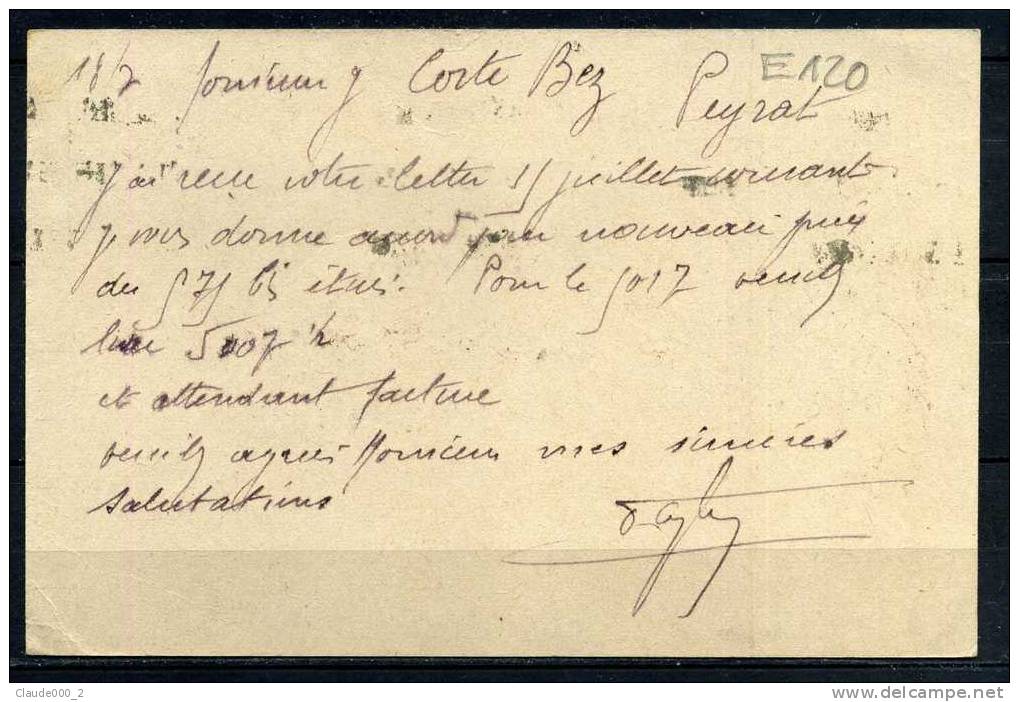 18/7 Monsieur J Corte Bez Peyrat
E120
J'ai reçu votre lettre 15 juillet courant
Je vous donne accord pour nouveau prix
du 575 bis étui. Pour le 5017 veuillez
lire 5007 1/2
et attendant facture
veuillez agréer Monsieur mes sincères
salutations
Claude000_2
delcampe.net